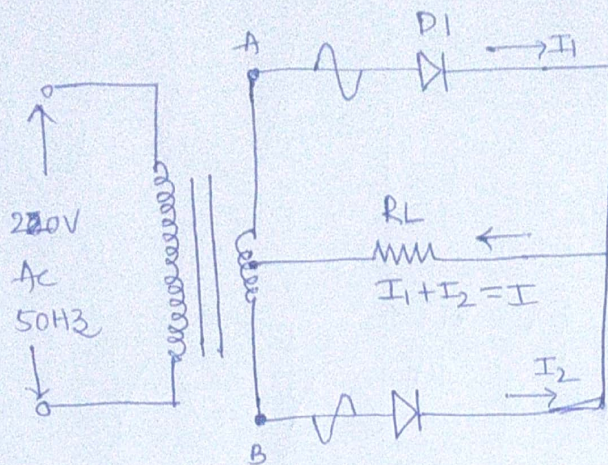 A
D1
I1
220V
AC
50Hz
RL
I1+I2=I
I2
B